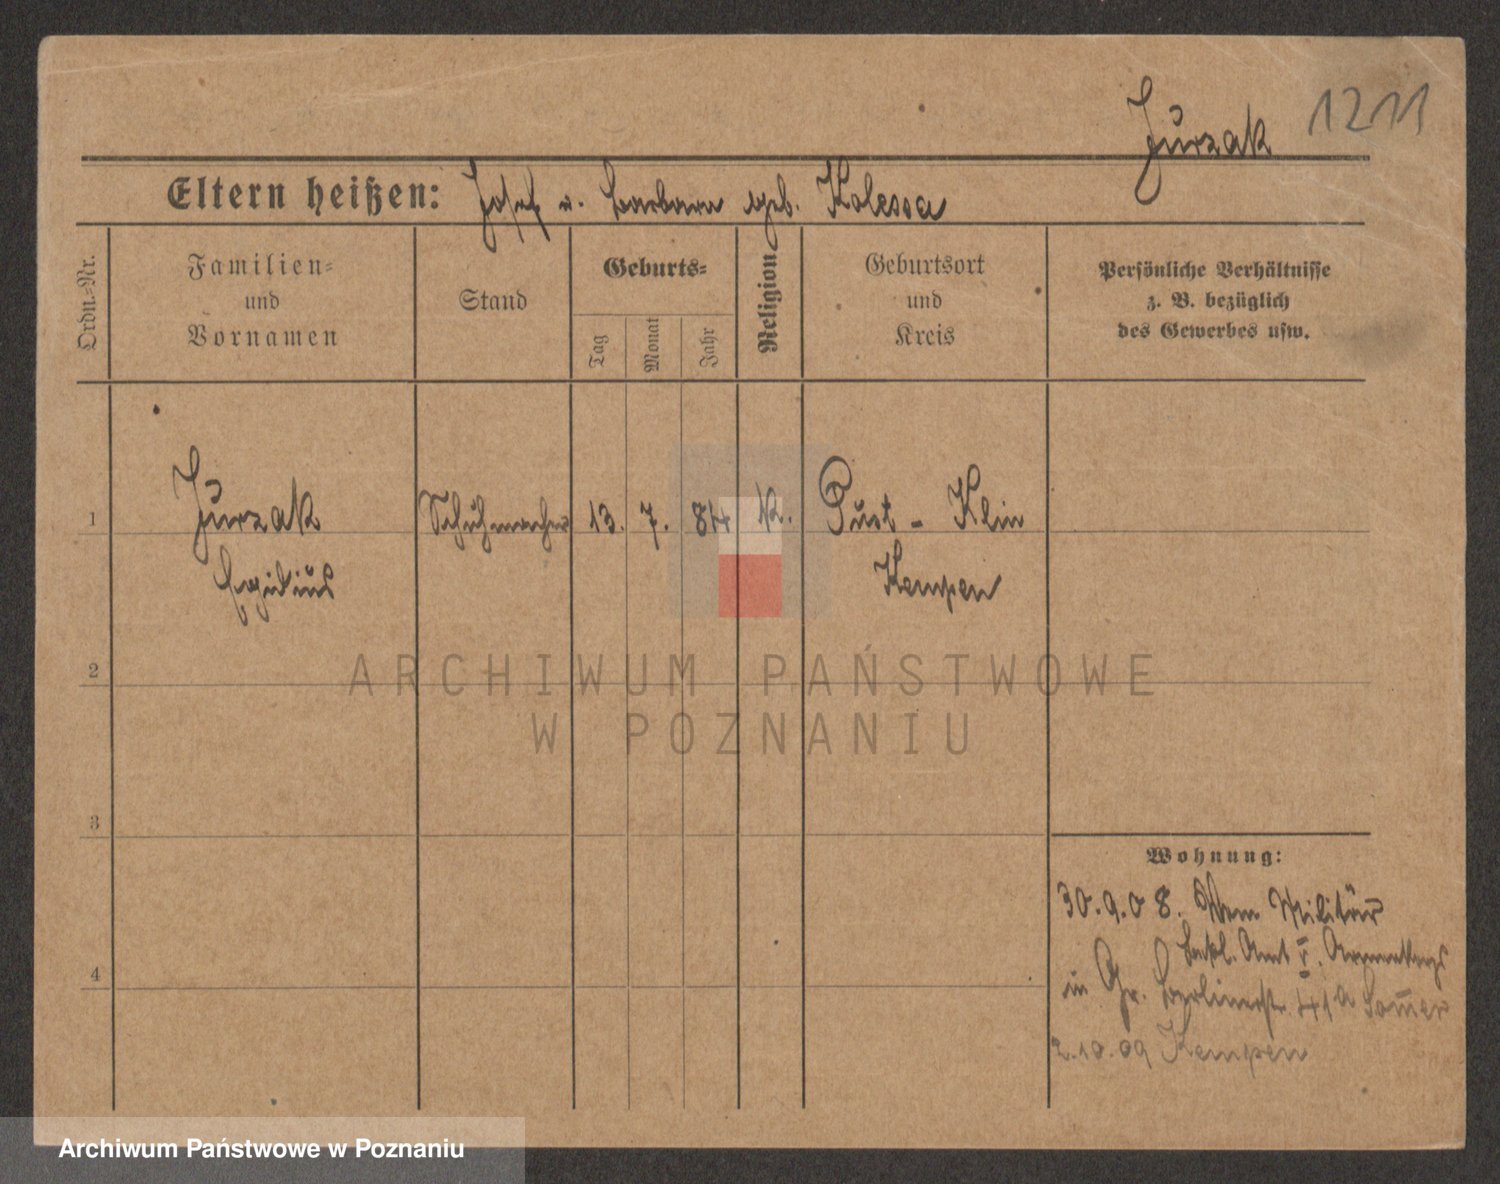 Jurzak 1211
Eltern heißen: Josef u. Barbara geb. Kolessa
Ordn.-Nr.
Familien-
und
Vornamen
Stand
Geburts-
Tag
Monat
Jahr
Religion
Geburtsort
und
Kreis
Persönliche Verhältnisse
z. B. bezüglich
des Gewerbes usw.
1 Jurzak Schuhmacher 13. 7. 84 K. Pust - Klin
Egidius Kempen
2
3
4
Wohnung:
30.9.08. Vom Militär
Bekl. Amt V. Armeekorps
in Gr. Berlinerstr. 41a
2.10.09 Kempen
ARCHIWUM PAŃSTWOWE
W POZNANIU
Archiwum Państwowe w Poznaniu